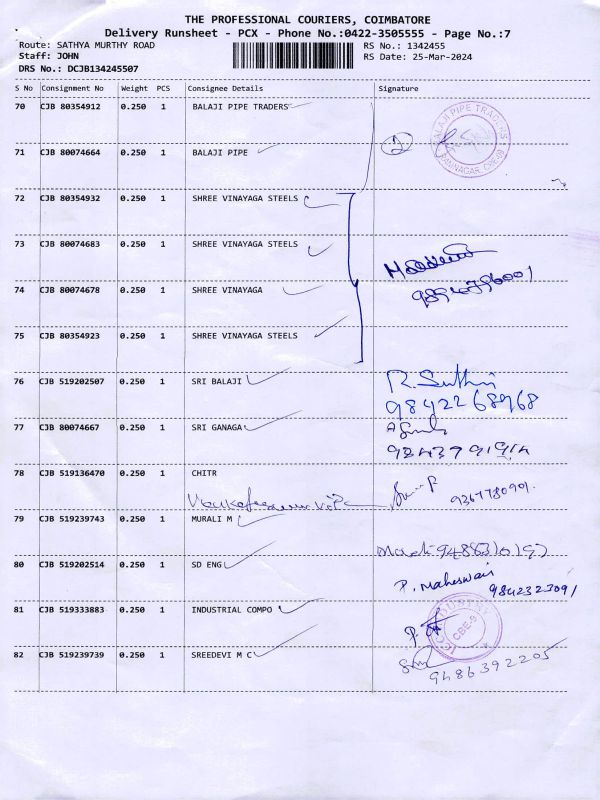 THE PROFESSIONAL COURIERS, COIMBATORE
Delivery Runsheet - PCX - Phone No.:0422-3505555 - Page No.:7
Route: SATHYA MURTHY ROAD RS No.: 1342455
Staff: JOHN RS Date: 25-Mar-2024
DRS No.: DCJB134245507
S No Consignment No Weight PCS Consignee Details Signature
70 CJB 80354912 0.250 1 BALAJI PIPE TRADERS
BALAJI PIPE TRADERS
RAMNAGAR, CBE-09
2
71 CJB 80074664 0.250 1 BALAJI PIPE
72 CJB 80354932 0.250 1 SHREE VINAYAGA STEELS
73 CJB 80074683 0.250 1 SHREE VINAYAGA STEELS
74 CJB 80074678 0.250 1 SHREE VINAYAGA
75 CJB 80354923 0.250 1 SHREE VINAYAGA STEELS
76 CJB 519202507 0.250 1 SRI BALAJI
9842268968
77 CJB 80074667 0.250 1 SRI GANAGA
78 CJB 519136470 0.250 1 CHITR
79 CJB 519239743 0.250 1 MURALI M
80 CJB 519202514 0.250 1 SD ENG
P. Maheswari 9842323091
81 CJB 519333883 0.250 1 INDUSTRIAL COMPO
CBE-9
82 CJB 519239739 0.250 1 SREEDEVI M C
9486392205